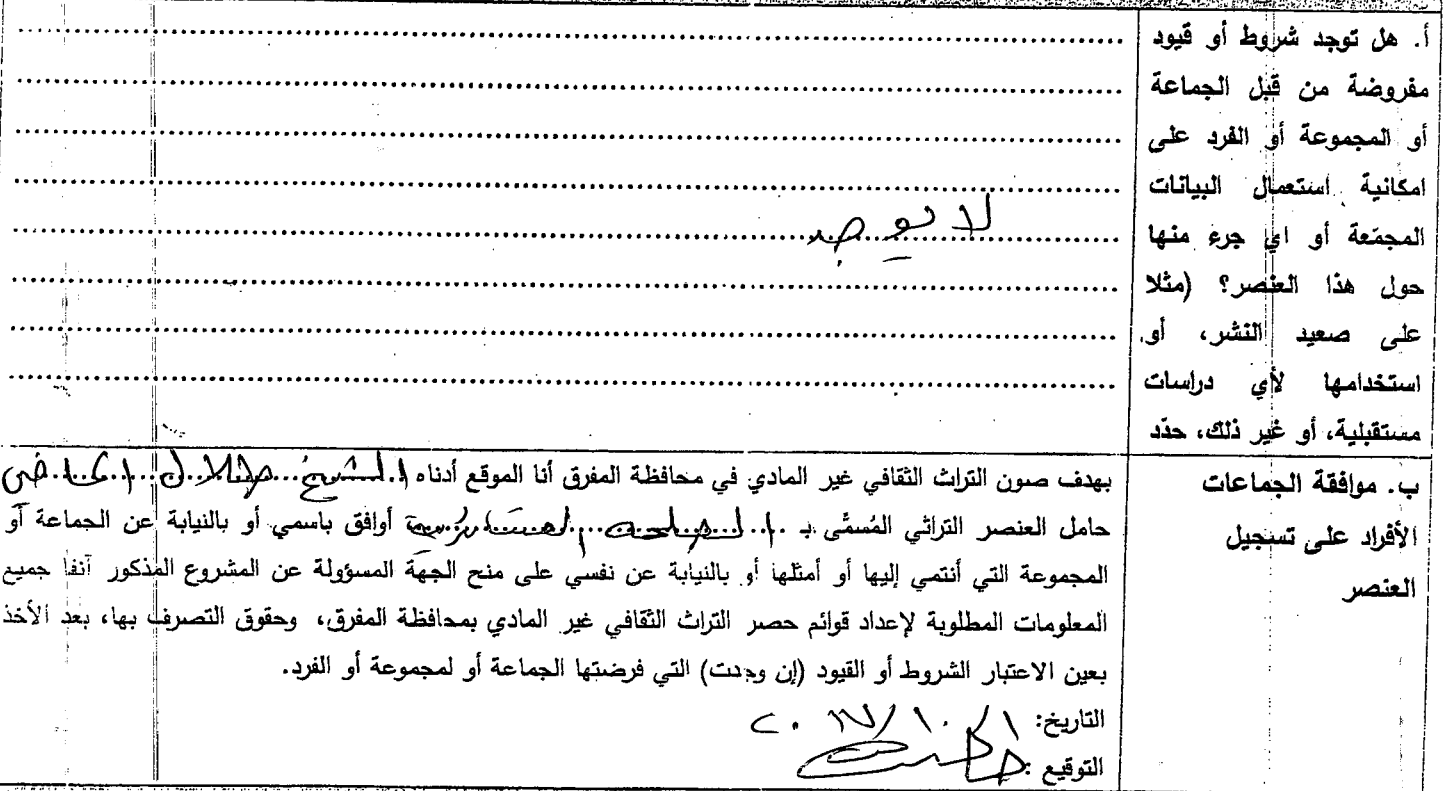 أ. هل توجد شروط أو قيود
مفروضة من قبل الجماعة
أو المجموعة أو الفرد على
امكانية استعمال البيانات
المجمّعة أو اي جزء منها
حول هذا العنصر؟ (مثلا
على صعيد النشر، أو
استخدامها لأي دراسات
مستقبلية، أو غير ذلك، حدّد
لا يوجد
ب. موافقة الجماعات
الأفراد على تسجيل
العنصر
بهدف صون التراث الثقافي غير المادي في محافظة المفرق أنا الموقع أدناه الشيخ طلال الماضي
حامل العنصر التراثي المُسمَّى بـ الصلحة العشائرية أوافق باسمي أو بالنيابة عن الجماعة أو
المجموعة التي أنتمي إليها أو أمثلها أو بالنيابة عن نفسي على منح الجهة المسؤولة عن المشروع المذكور آنفا جميع
المعلومات المطلوبة لإعداد قوائم حصر التراث الثقافي غير المادي بمحافظة المفرق، وحقوق التصرف بها، بعد الأخذ
بعين الاعتبار الشروط أو القيود (إن وجدت) التي فرضتها الجماعة أو لمجموعة أو الفرد.
التاريخ:
التوقيع: